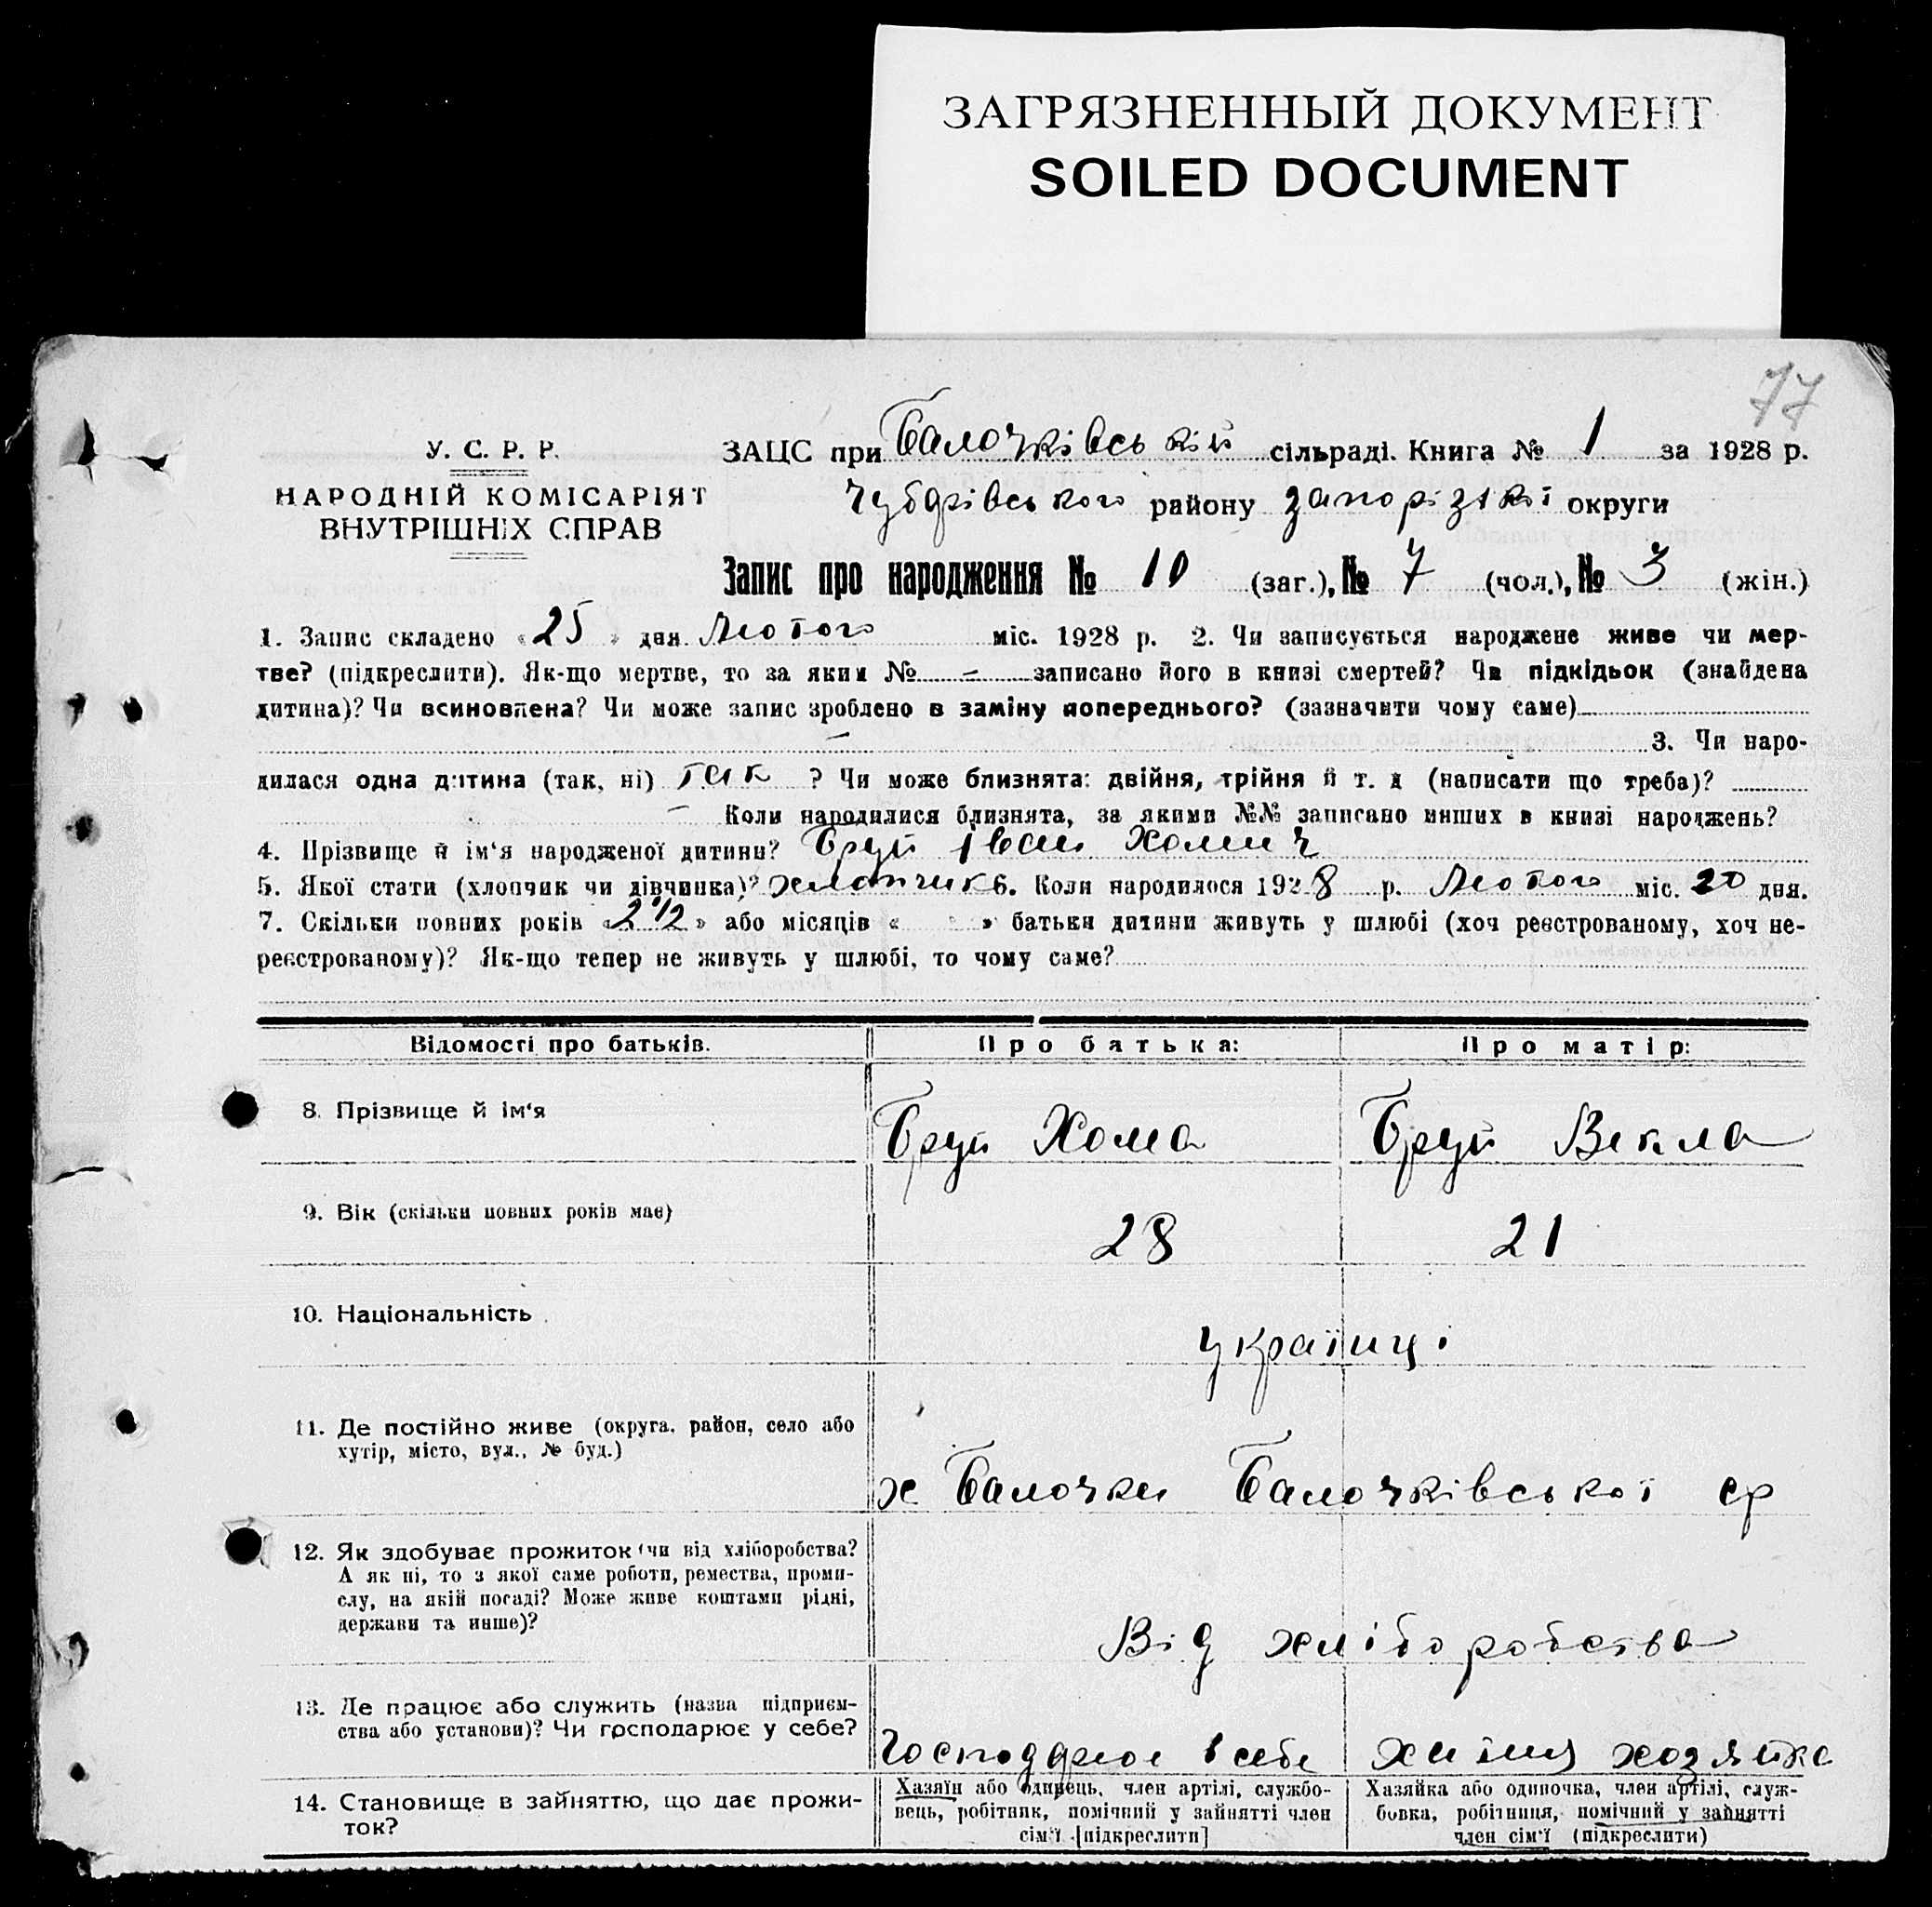 ЗАГРЯЗНЕННЫЙ ДОКУМЕНТ
SOILED DOCUMENT
77
У. С. Р. Р.
НАРОДНІЙ КОМІСАРІЯТ
ВНУТРІШНІХ СПРАВ
ЗАЦС при Балочківській сільраді. Книга № 1 за 1928 р.
Чубарівського району Запорізької округи
Запис про народження № 10 (заг.), № 7 (чол.), № 3 (жін.)
1. Запис складено «25» дня Лютого міс. 1928 р. 2. Чи записується народжене живе чи мер-
тве? (підкреслити). Як-що мертве, то за яким № – записано його в книзі смертей? Чи підкідьок (знайдена
дитина)? Чи всиновлена? Чи може запис зроблено в заміну попереднього? (зазначити чому саме)
– 3. Чи наро-
дилася одна дитина (так, ні) так ? Чи може близнята: двійня, трійня й т. д (написати що треба)?
– Коли народилися близнята, за якими №№ записано инших в книзі народжень?
4. Прізвище й ім'я народженої дитини? Бруй Іван Хомич
5. Якої стати (хлопчик чи дівчинка)? хлопчик 6. Коли народилося 1928 р. Лютого міс. 20 дня.
7. Скільки повних років «2 1/2» або місяців « » батьки дитини живуть у шлюбі (хоч реєстрованому, хоч не-
реєстрованому)? Як-що тепер не живуть у шлюбі, то чому саме?
Відомості про батьків. Про батька: Про матір:
8. Прізвище й ім'я Бруй Хома Бруй Векла
9. Вік (скільки повних років має) 28 21
10. Національність українці
11. Де постійно живе (округа, район, село або
хутір, місто, вул., № буд.)
х Балочки Балочківської ср
12. Як здобуває прожиток (чи від хліборобства?
А як ні, то з якої саме роботи, ремества, проми-
слу, на якій посаді? Може живе коштами рідні,
держави та инше)?
Від хліборобства
13. Де працює або служить (назва підприєм-
ства або установи)? Чи господарює у себе?
Господарює в себе хатня хозяйка
14. Становище в зайняттю, що дає прожи-
ток?
Хазяїн або одинець, член артілі, службо-
вець, робітник, помічний у зайнятті член
сім'ї [підкреслити]
Хазяйка або одиночка, член артілі, служ-
бовка, робітниця, помічний у зайнятті
член сім'ї (підкреслити)